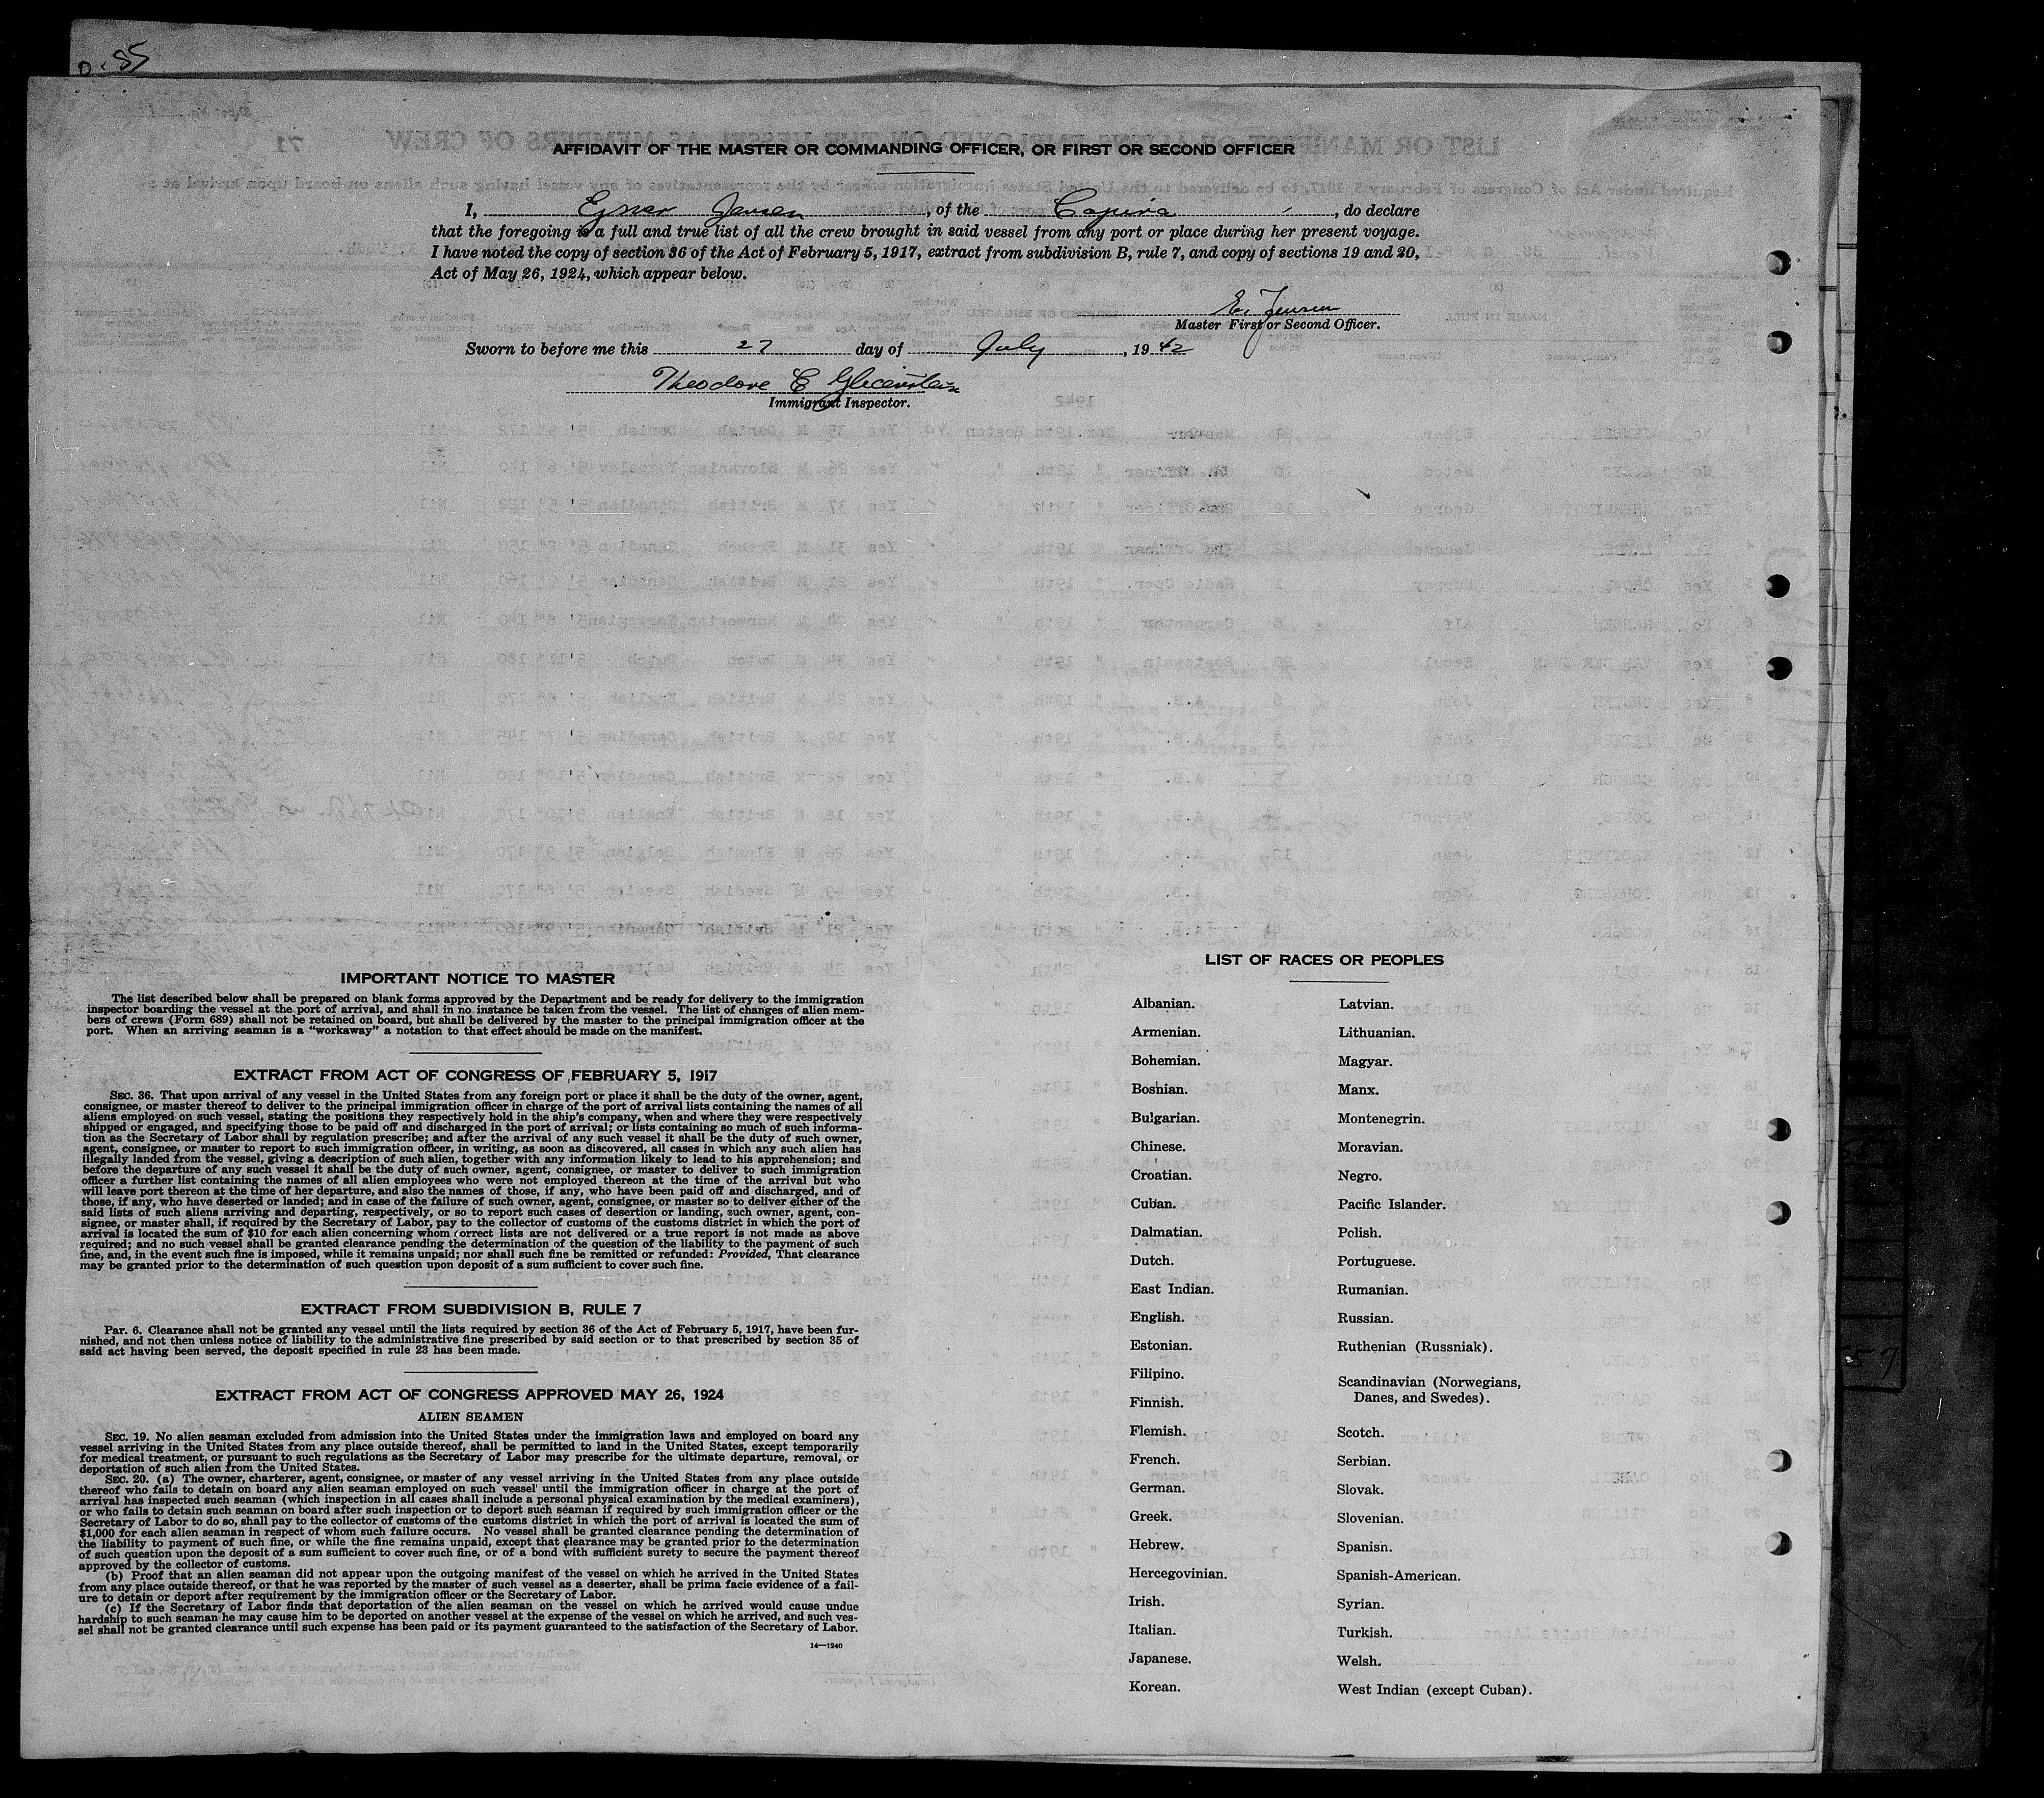 0-85
AFFIDAVIT OF THE MASTER OR COMMANDING OFFICER, OR FIRST OR SECOND OFFICER
I, Ejner Jensen, of the Capira, do declare
that the foregoing is a full and true list of all the crew brought in said vessel from any port or place during her present voyage.
I have noted the copy of section 36 of the Act of February 5, 1917, extract from subdivision B, rule 7, and copy of sections 19 and 20,
Act of May 26, 1924, which appear below.
E. Jensen
Master First or Second Officer.
Sworn to before me this 27 day of July, 1942
Theodore E
Immigrant Inspector.
IMPORTANT NOTICE TO MASTER
The list described below shall be prepared on blank forms approved by the Department and be ready for delivery to the immigration
inspector boarding the vessel at the port of arrival, and shall in no instance be taken from the vessel. The list of changes of alien mem-
bers of crews (Form 689) shall not be retained on board, but shall be delivered by the master to the principal immigration officer at the
port. When an arriving seaman is a "workaway" a notation to that effect should be made on the manifest.
EXTRACT FROM ACT OF CONGRESS OF FEBRUARY 5, 1917
SEC. 36. That upon arrival of any vessel in the United States from any foreign port or place it shall be the duty of the owner, agent,
consignee, or master thereof to deliver to the principal immigration officer in charge of the port of arrival lists containing the names of all
aliens employed on such vessel, stating the positions they respectively hold in the ship's company, when and where they were respectively
shipped or engaged, and specifying those to be paid off and discharged in the port of arrival; or lists containing so much of such informa-
tion as the Secretary of Labor shall by regulation prescribe; and after the arrival of any such vessel it shall be the duty of such owner,
agent, consignee, or master to report to such immigration officer, in writing, as soon as discovered, all cases in which any such alien has
illegally landed from the vessel, giving a description of such alien, together with any information likely to lead to his apprehension; and
before the departure of any such vessel it shall be the duty of such owner, agent, consignee, or master to deliver to such immigration
officer a further list containing the names of all alien employees who were not employed thereon at the time of the arrival but who
will leave port thereon at the time of her departure, and also the names of those, if any, who have been paid off and discharged, and of
those, if any, who have deserted or landed; and in case of the failure of such owner, agent, consignee, or master so to deliver either of the
said lists of such aliens arriving and departing, respectively, or so to report such cases of desertion or landing, such owner, agent, con-
signee, or master shall, if required by the Secretary of Labor, pay to the collector of customs of the customs district in which the port of
arrival is located the sum of $10 for each alien concerning whom correct lists are not delivered or a true report is not made as above
required; and no such vessel shall be granted clearance pending the determination of the question of the liability to the payment of such
fine, and, in the event such fine is imposed, while it remains unpaid; nor shall such fine be remitted or refunded: Provided, That clearance
may be granted prior to the determination of such question upon deposit of a sum sufficient to cover such fine.
EXTRACT FROM SUBDIVISION B, RULE 7
Par. 6. Clearance shall not be granted any vessel until the lists required by section 36 of the Act of February 5, 1917, have been fur-
nished, and not then unless notice of liability to the administrative fine prescribed by said section or to that prescribed by section 35 of
said act having been served, the deposit specified in rule 23 has been made.
EXTRACT FROM ACT OF CONGRESS APPROVED MAY 26, 1924
ALIEN SEAMEN
SEC. 19. No alien seaman excluded from admission into the United States under the immigration laws and employed on board any
vessel arriving in the United States from any place outside thereof, shall be permitted to land in the United States, except temporarily
for medical treatment, or pursuant to such regulations as the Secretary of Labor may prescribe for the ultimate departure, removal, or
deportation of such alien from the United States.
SEC. 20. (a) The owner, charterer, agent, consignee, or master of any vessel arriving in the United States from any place outside
thereof who fails to detain on board any alien seaman employed on such vessel until the immigration officer in charge at the port of
arrival has inspected such seaman (which inspection in all cases shall include a personal physical examination by the medical examiners),
or who fails to detain such seaman on board after such inspection or to deport such seaman if required by such immigration officer or the
Secretary of Labor to do so, shall pay to the collector of customs of the customs district in which the port of arrival is located the sum of
$1,000 for each alien seaman in respect of whom such failure occurs. No vessel shall be granted clearance pending the determination of
the liability to payment of such fine, or while the fine remains unpaid, except that clearance may be granted prior to the determination
of such question upon the deposit of a sum sufficient to cover such fine, or of a bond with sufficient surety to secure the payment thereof
approved by the collector of customs.
(b) Proof that an alien seaman did not appear upon the outgoing manifest of the vessel on which he arrived in the United States
from any place outside thereof, or that he was reported by the master of such vessel as a deserter, shall be prima facie evidence of a fail-
ure to detain or deport after requirement by the immigration officer or the Secretary of Labor.
(c) If the Secretary of Labor finds that deportation of the alien seaman on the vessel on which he arrived would cause undue
hardship to such seaman he may cause him to be deported on another vessel at the expense of the vessel on which he arrived, and such ves-
sel shall not be granted clearance until such expense has been paid or its payment guaranteed to the satisfaction of the Secretary of Labor.
14—1240
LIST OF RACES OR PEOPLES
Albanian.
Armenian.
Bohemian.
Bosnian.
Bulgarian.
Chinese.
Croatian.
Cuban.
Dalmatian.
Dutch.
East Indian.
English.
Estonian.
Filipino.
Finnish.
Flemish.
French.
German.
Greek.
Hebrew.
Hercegovinian.
Irish.
Italian.
Japanese.
Korean.
Latvian.
Lithuanian.
Magyar.
Manx.
Montenegrin.
Moravian.
Negro.
Pacific Islander.
Polish.
Portuguese.
Rumanian.
Russian.
Ruthenian (Russniak).
Scandinavian (Norwegians,
Danes, and Swedes).
Scotch.
Serbian.
Slovak.
Slovenian.
Spanish.
Spanish-American.
Syrian.
Turkish.
Welsh.
West Indian (except Cuban).